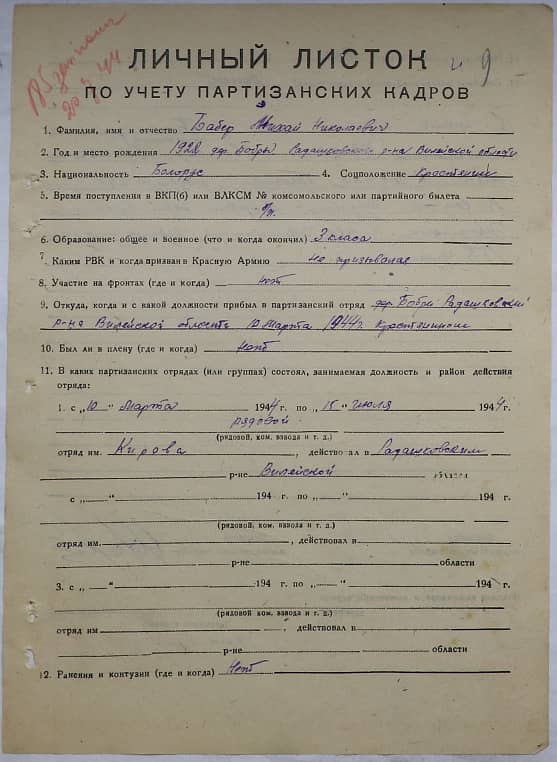 В запасе
20.7.44
9
ЛИЧНЫЙ ЛИСТОК
ПО УЧЕТУ ПАРТИЗАНСКИХ КАДРОВ
1. Фамилия, имя и отчество Бабер Михаил Николаевич
2. Год и место рождения 1928 дер Бобры Радашковского р-на Вилейской области
3. Национальность Белорус 4. Соцположение Крестянин
5. Время поступления в ВКП(б) или ВЛКСМ № комсомольского или партийного билета
6. Образование: общее и военное (что и когда окончил) 3 класа
7. Каким РВК и когда призван в Красную Армию не призывался
8. Участие на фронтах (где и когда) нет
9. Откуда, когда и с какой должности прибыл в партизанский отряд дер Бобры Радашковский
р-на Вилейской область 10 Марта 1944 г. Крестянином
10. Был ли в плену (где и когда) Нет
11. В каких партизанских отрядах (или группах) состоял, занимаемая должность и район действия
отряда:
1. с „10" Марта 1944 г. по „15" июля 1944 г.
рядовой
(рядовой, ком. взвода и т. д.)
отряд им. Кирова, действовал в Радашковским
р-не Вилейской области
с „—“ 194 г. по „—“ 194 г.
(рядовой, ком. взвода и т. д.)
отряд им. , действовал в
р-не области
3. с „—“ 194 г. по „—“ 194 г.
(рядовой, ком. взвода и т. д.)
отряд им. , действовал в
р-не области
12. Ранения и контузии (где и когда) Нет